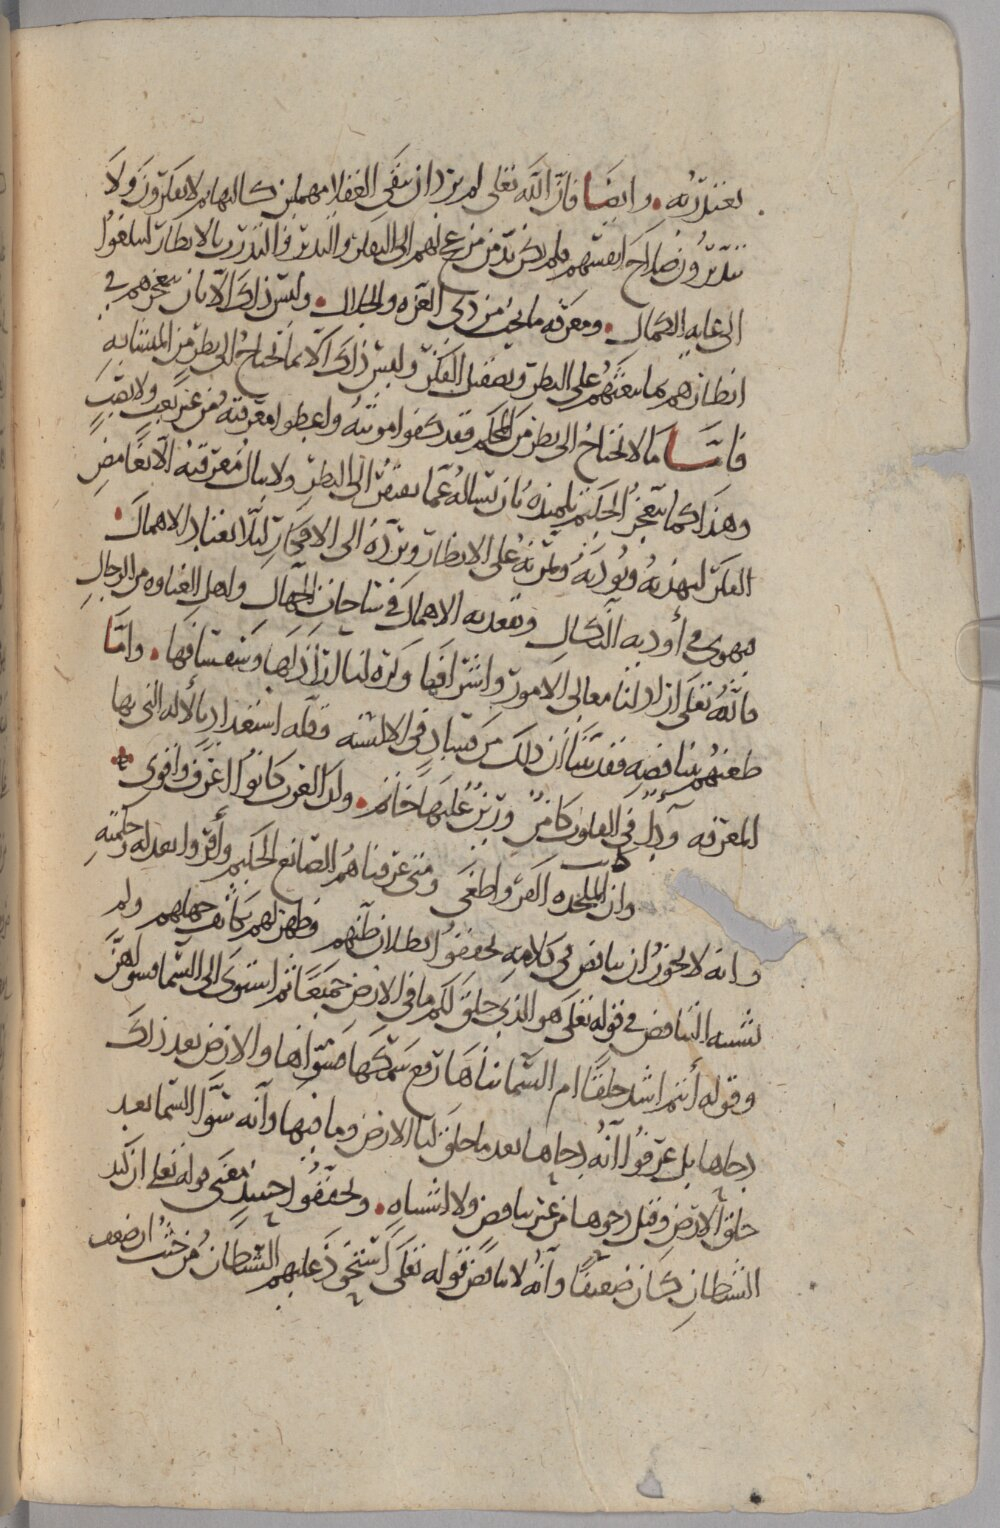 بعتذر به . وايضا فان الله تعلى لم يرد ان يبقى العقلا مهملين كالبهايم لا يفكرون ولا
يتدبرون صلاح انفسهم فلم يكن بد من مزعج لهم الى التفكر والتدبر والتدرب بالانظار ليبلغوا
الى غاية الكمال . ومعرفة ما يجب من ذي العزه والجلال . وليس ذلك الا بان يتعجزهم في
انظارهم بما يبعثهم على النظر وبصقيل الفكر وليس ذلك الا بما احتاج الى نظر من المتشابه
فاما ما لا يحتاج الى نظر من المحكم فقد كفوا مونته واعطوا معرفته من غير تعب ولا نصب
وهذا كما يتعجز الحكيم تلميذه بان يساله عما يفتقر الى النظر ولا ينال معرفته الا بغامض
الفكر ليهذبه ويودبه ويمرنه على الانظار ويرده الى الافكار ليلا يعتاد الاهمال .
فيهوى في أودية النكال ويقعد به الاهمال في ساحات الجهال واهل الغباوه من الرجال
فانه تعلى اراد لنا معالي الامور واشرافها وكره لنا ارذالها وسفسافها . واما
طعنهم بمناقضه فقد بينا ان ذلك من فساد في الالسنه وقله استعداد بالأله التي بها
المعرفه وداء في القلوب كامن ورين عليها خاتم . ولان العرب كانوا اعرف واقوى
وان كانت الملحده اكفر واطغى ومتى عرفنا هم الصانع الحكيم وأقروا بعدله وحكمته
وانه لا يجوز ان يناقض في كلامه تحققوا بطلان ظنهم وظهر لهم تكاثف جهلهم ولم
يشبه التناقض في قوله تعلى هو الذي خلق لكم ما في الارض جميعا ثم استوى الى السما فسواهن
وقوله أنتم اشد خلقا ام السما بناها رفع سمكها فسواها والارض بعد ذلك
دحاها بل عرفوا انه دحاها بعد ما خلق لنا الارض وما فيها وانه سوا السما بعد
خلق الارض وقبل دحوها من غير تناقض ولا اشتباه . وتحققوا حينيذ معنى قوله تعلى ان كيد
الشيطان كان ضعيفا وانه لا يناقض قوله تعلى استحوذ عليهم الشيطان من حيث ان ضعف